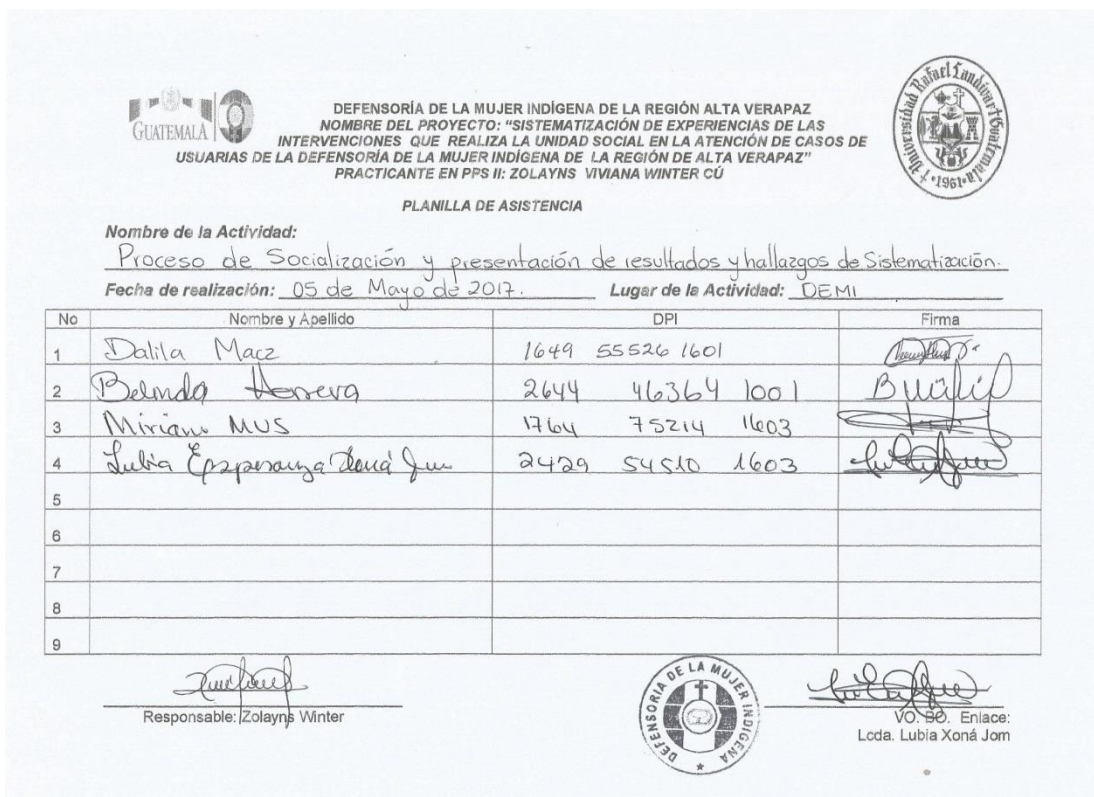 GUATEMALA
Universidad Rafael Landívar Guatemala
1961
DEFENSORÍA DE LA MUJER INDÍGENA DE LA REGIÓN ALTA VERAPAZ
NOMBRE DEL PROYECTO: "SISTEMATIZACIÓN DE EXPERIENCIAS DE LAS
INTERVENCIONES QUE REALIZA LA UNIDAD SOCIAL EN LA ATENCIÓN DE CASOS DE
USUARIAS DE LA DEFENSORÍA DE LA MUJER INDÍGENA DE LA REGIÓN DE ALTA VERAPAZ"
PRACTICANTE EN PPS II: ZOLAYNS VIVIANA WINTER CÚ
PLANILLA DE ASISTENCIA
Nombre de la Actividad:
Proceso de Socialización y presentación de resultados y hallazgos de Sistematización.
Fecha de realización: 05 de Mayo de 2017. Lugar de la Actividad: DEMI
No Nombre y Apellido DPI Firma
1 Dalila Macz 1649 55526 1601
2 Belinda Herrera 2644 46364 1001
3 Miriam MUS 1764 75214 1603
4 Lubia Esperanza Xoná Jom 2429 54510 1603
5
6
7
8
9
Responsable: Zolayns Winter
DEFENSORIA DE LA MUJER INDIGENA
VO. BO. Enlace:
Lcda. Lubia Xoná Jom